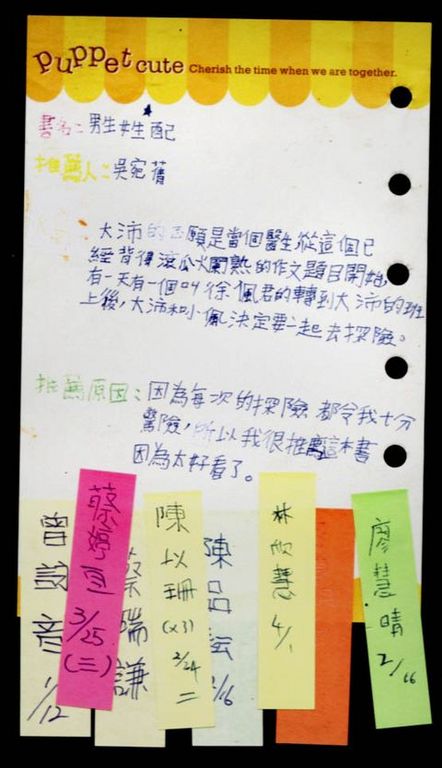 Puppet cute Cherish the time when we are together.
書名：男生女生配
推薦人：吳宛蒨
大沛的志願是當個醫生，從這個已
經背得滾瓜火闌熟的作文題目開始，
有一天有一個叫徐佩君的轉到大沛的班
上後，大沛和小佩決定要一起去探險。
推薦原因：因為每次的探險都令我十分
驚險，所以我很推薦這本書
因為太好看了。
曾
1/12
蔡婷
3/25
(三)
蔡瑞謙
陳以珊
(x3)
2/24
二
陳品
2/16
林欣慧
4/1
廖慧晴
2/16